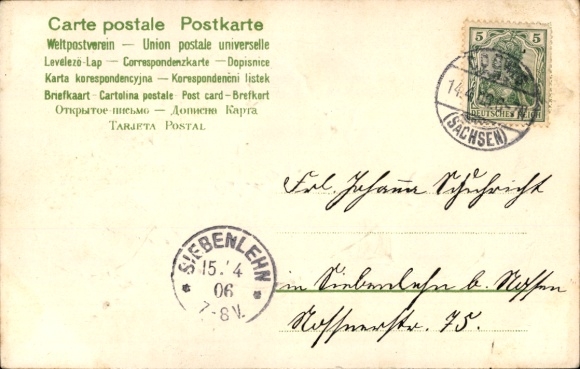 Carte postale Postkarte
Weltpostverein — Union postale universelle
Levelező-Lap — Correspondenzkarte — Dopisnice
Karta korespondencyjna — Korespondenční lístek
Briefkaart - Cartolina postale - Post card - Brefkort
Открытое письмо — Дописна Карта
Tarjeta Postal
5 5
DEUTSCHES REICH
14.4.
(SACHSEN)
Frl. Johanna Schuhricht
SIEBENLEHN
15. 4
06
7-8V.
in Siebenlehn b. Nossen
Nossnerstr. 75.